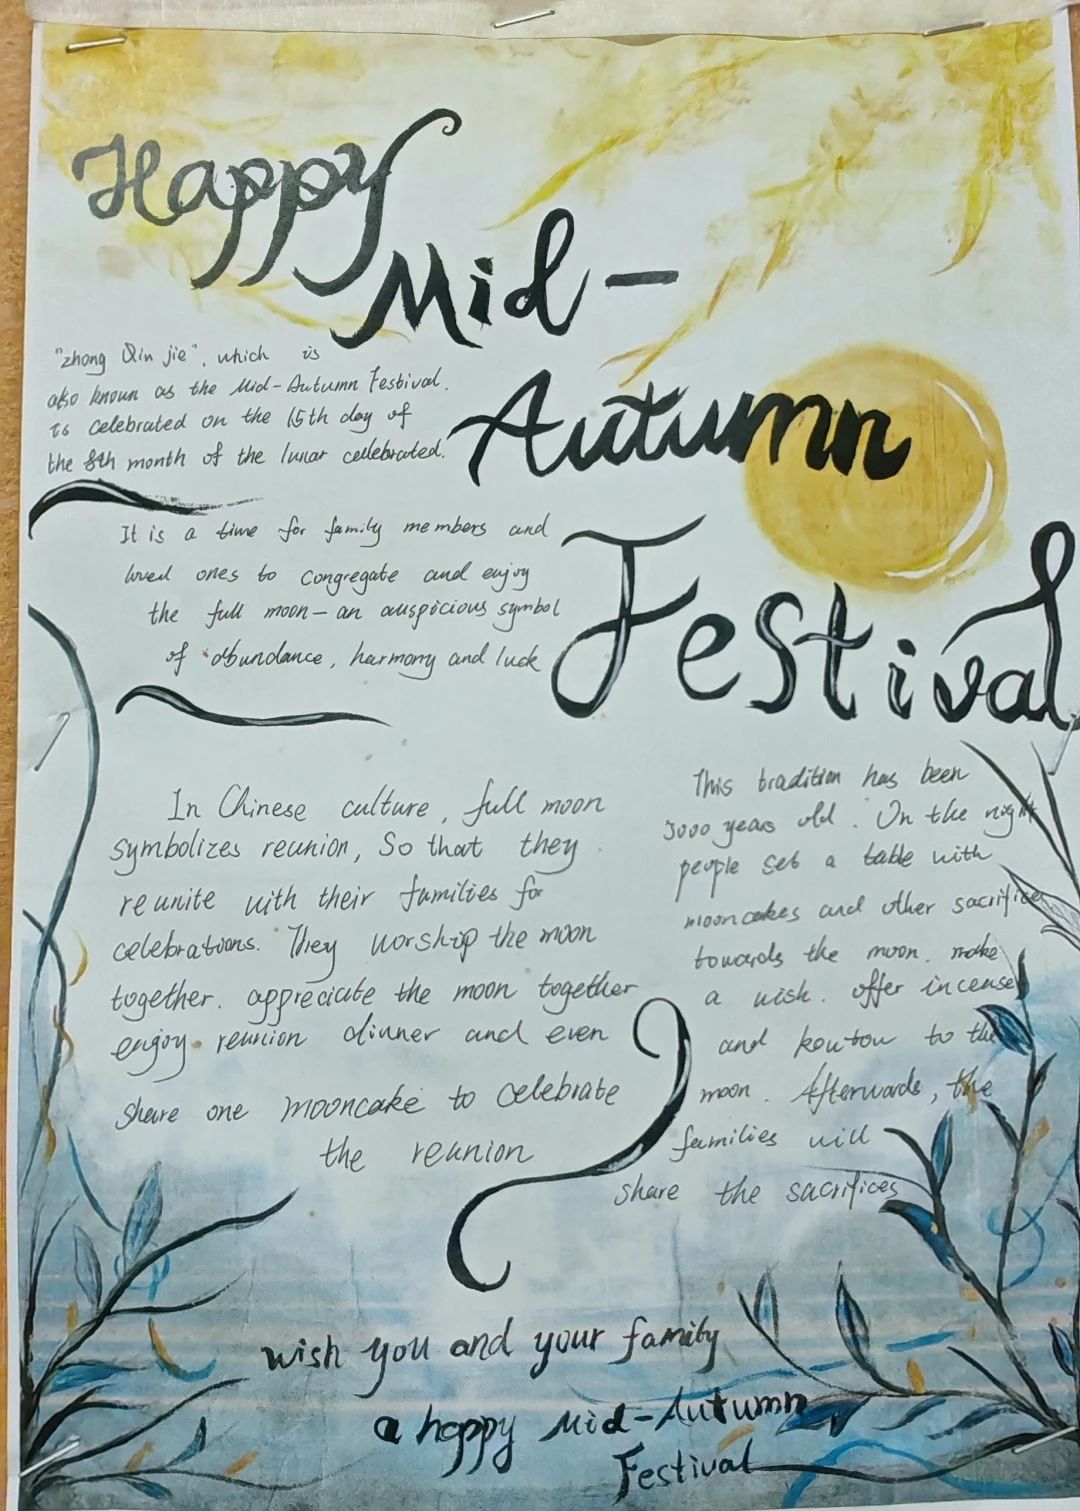 Happy
Mid-
Autumn
Festival
"zhong Qin jie", which is
also known as the Mid-Autumn Festival.
is celebrated on the 15th day of
the 8th month of the lunar cellebrated.
It is a time for family members and
loved ones to congregate and enjoy
the full moon—an auspicious symbol
of abundance, harmony and luck
In Chinese culture, full moon
symbolizes reunion, So that they
reunite with their families for
celebrations. They worship the moon
together. appreciate the moon together
enjoy reunion dinner and even
share one mooncake to celebrate
the reunion
This tradition has been
3000 years old. On the night
people set a table with
mooncakes and other sacrifices
towards the moon. make
a wish. offer incense
and kowtow to the
moon. Afterwards, the
families will
share the sacrifices
wish you and your family
a happy Mid-Autumn
Festival